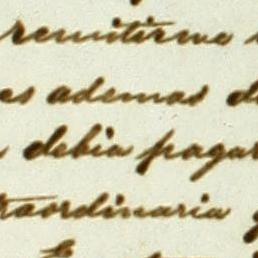 remitirme
es ademas d
debia pagar
traordinaria